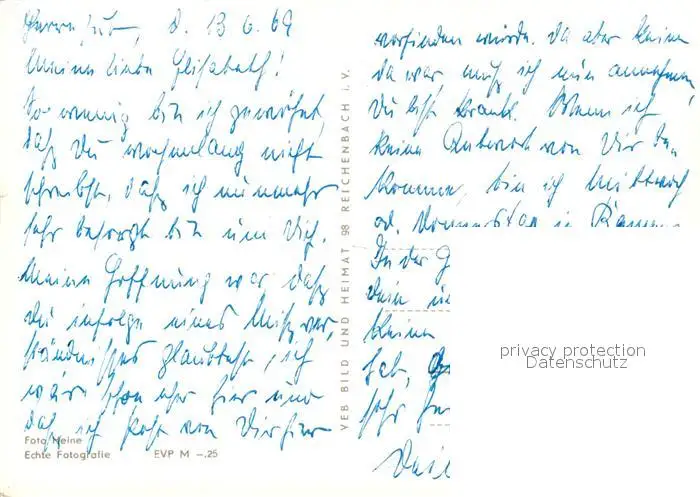 d. 13.6.69
Meine liebe Elisabeth!
So wenig bin ich gewöhnt,
daß Du wochenlang nicht
schreibst, daß ich nunmehr
sehr besorgt bin um Dich.
Meine Hoffnung war daß
Du infolge eines Mißver-
ständnisses glaubtest, ich
wäre schon eher hier und
daß ich Post von Dir hier
Foto Heine
Echte Fotografie EVP M –,25
VEB BILD UND HEIMAT 98 REICHENBACH I. V.
vorfinden würde. Da aber keine
da war, muß ich nun annehmen
Du bist krank. Wenn ich
keine Antwort von Dir be-
komme, bin ich Mittwoch
od. Donnerstag in
In der
Dein
keine
hab,
sehr
privacy protection
Datenschutz